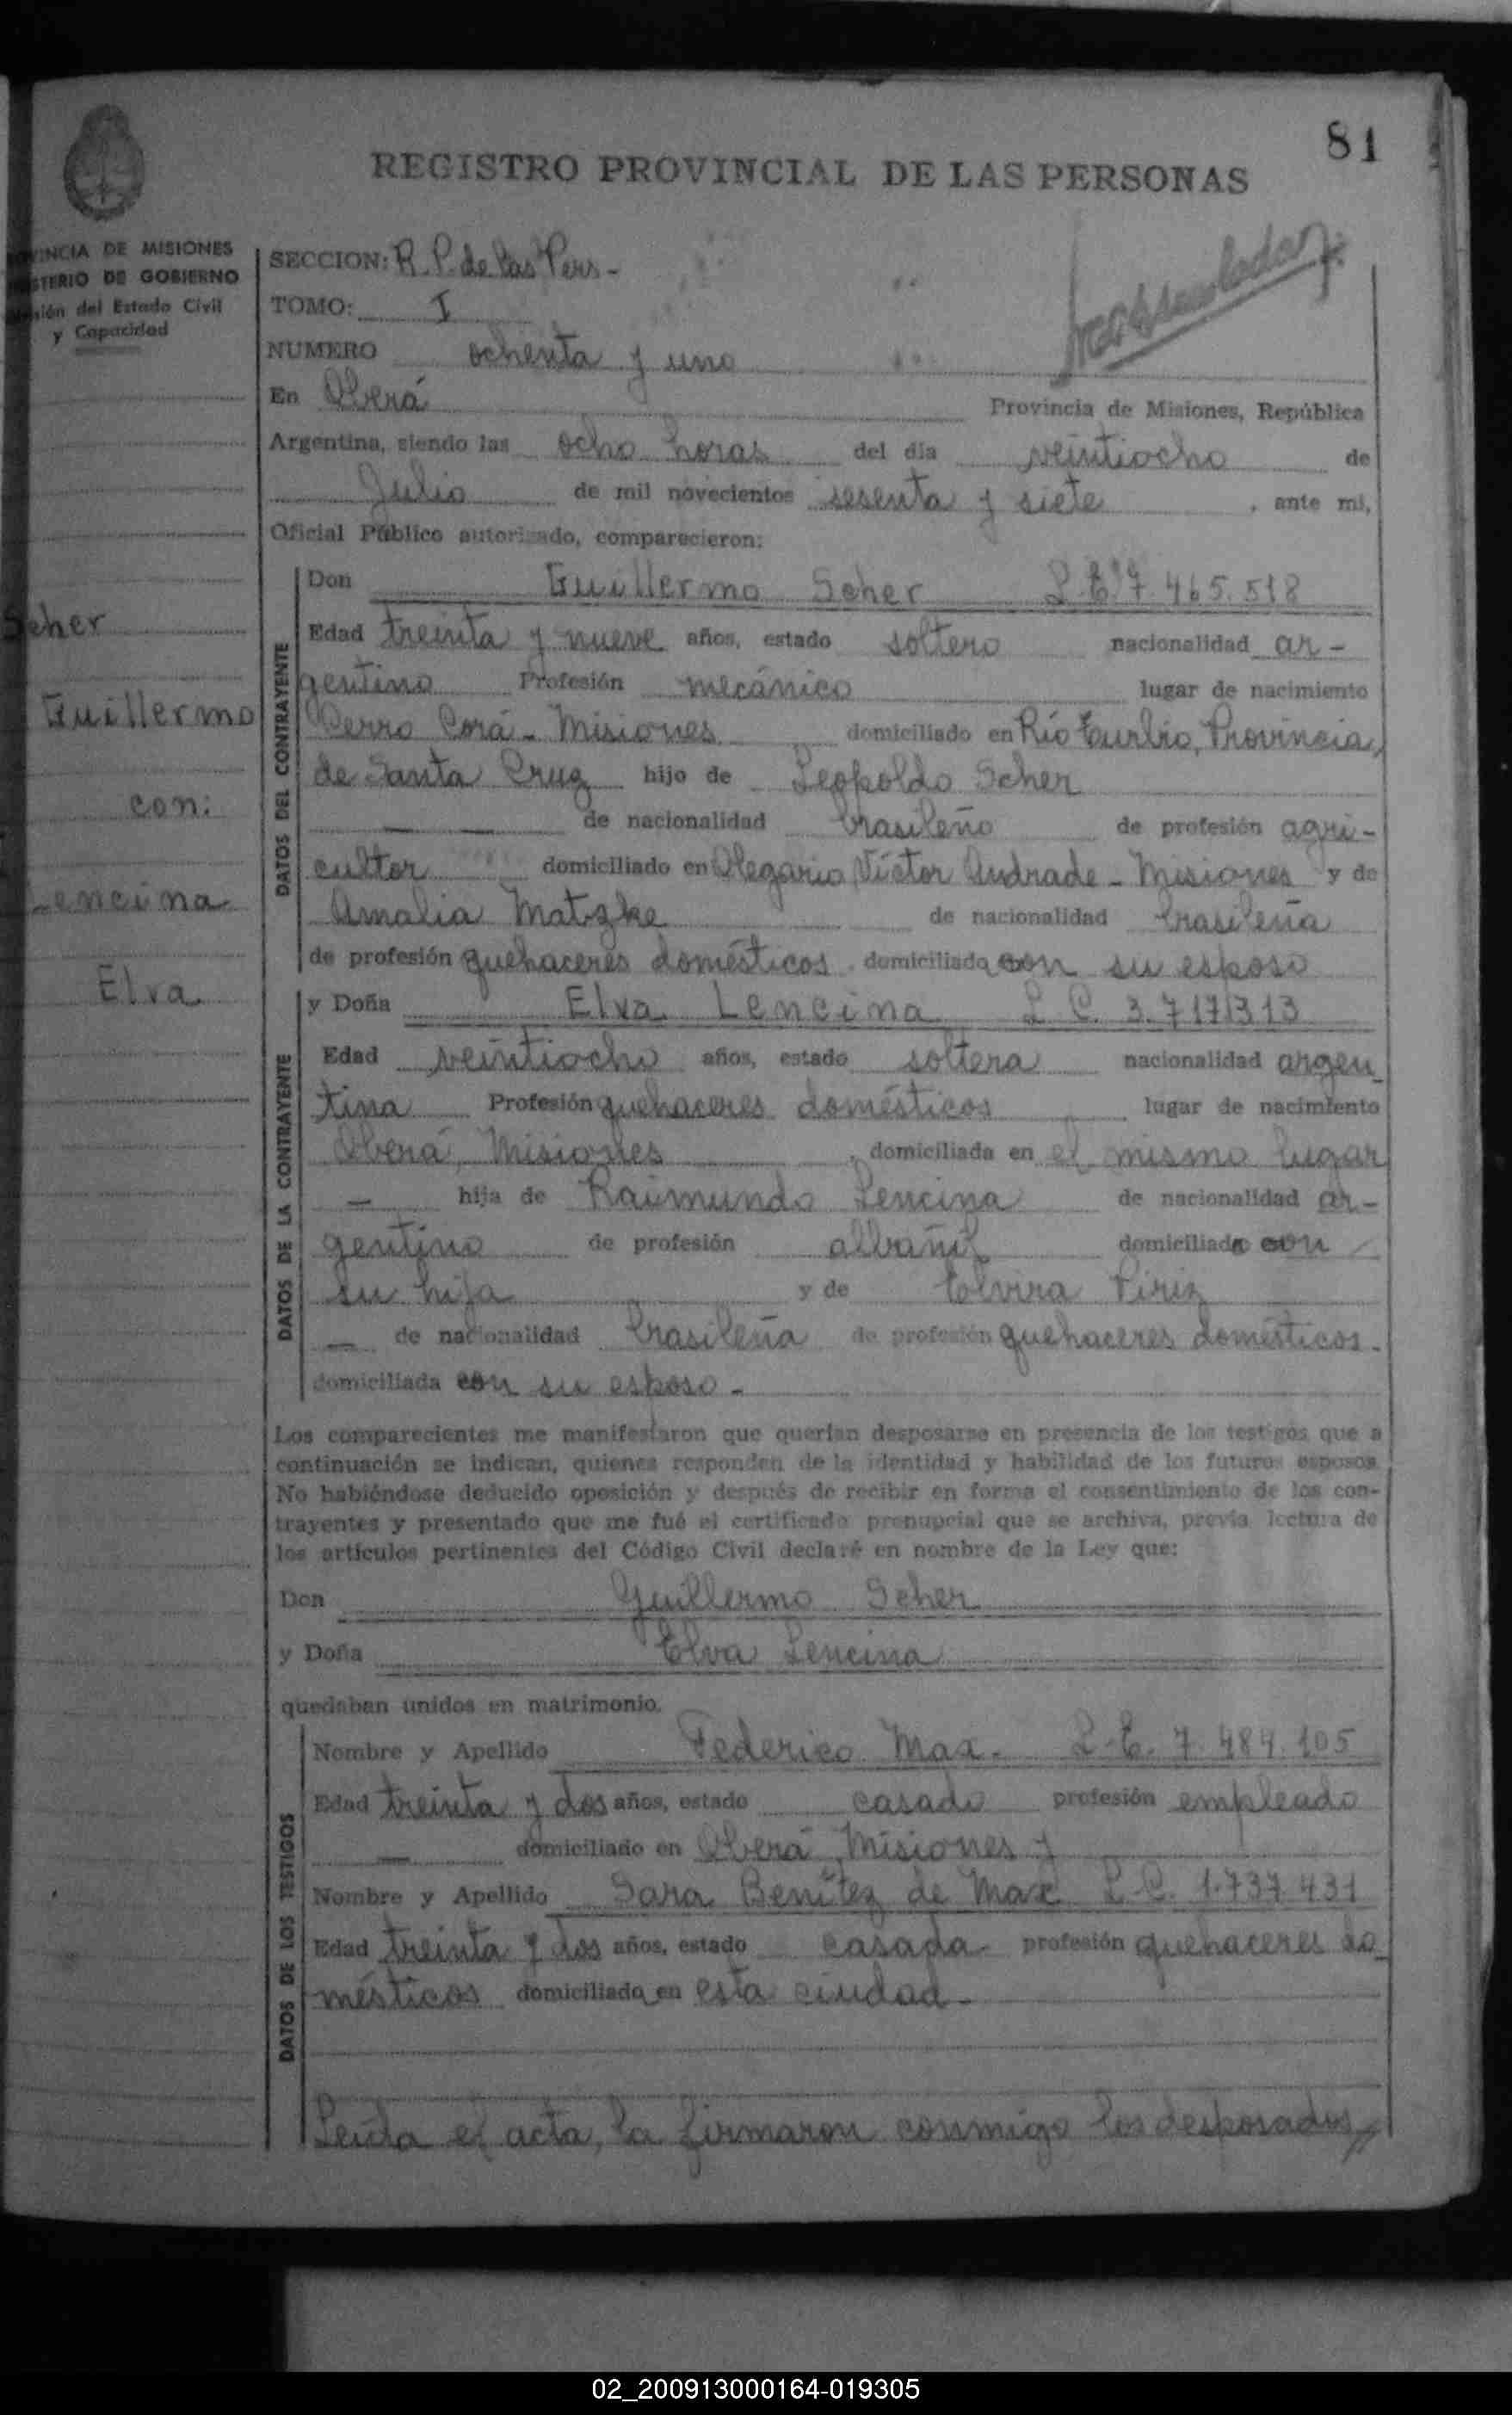 81
REGISTRO PROVINCIAL DE LAS PERSONAS
VINCIA DE MISIONES
STERIO DE GOBIERNO
del Estado Civil
y Capacidad
SECCION: R. P. de las Pers -
TOMO: I
NUMERO ochenta y uno
En Oberá Provincia de Misiones, República
Argentina, siendo las ocho horas del día veintiocho de
Julio de mil novecientos sesenta y siete, ante mi,
Oficial Público autorizado, comparecieron:
Scher
Guillermo
con:
Lencina
Elva
DATOS DEL CONTRAYENTE
Don Guillermo Scher L.E. 7.465.518
Edad treinta y nueve años, estado soltero nacionalidad ar-
gentino Profesión mecánico lugar de nacimiento
Cerro Corá - Misiones domiciliado en Río Turbio, Provincia
de Santa Cruz hijo de Leopoldo Scher
de nacionalidad brasileño de profesión agri-
cultor domiciliado en Olegario Víctor Andrade - Misiones y de
Amalia Matzke de nacionalidad brasileña
de profesión quehaceres domésticos domiciliada con su esposo
DATOS DE LA CONTRAYENTE
y Doña Elva Lencina L.C. 3.717.313
Edad veintiocho años, estado soltera nacionalidad argen
tina Profesión quehaceres domésticos lugar de nacimiento
Oberá, Misiones, domiciliada en el mismo lugar
— hija de Raimundo Lencina de nacionalidad ar-
gentino de profesión albañil domiciliado con
su hija y de Elvira Piriz
— de nacionalidad brasileña de profesión quehaceres domésticos.
domiciliada con su esposo -
Los comparecientes me manifestaron que querían desposarse en presencia de los testigos que a
continuación se indican, quienes responden de la identidad y habilidad de los futuros esposos
No habiéndose deducido oposición y después de recibir en forma el consentimiento de los con-
trayentes y presentado que me fué el certificado prenupcial que se archiva, previa lectura de
los artículos pertinentes del Código Civil declaré en nombre de la Ley que:
Don Guillermo Scher
y Doña Elva Lencina
quedaban unidos en matrimonio.
DATOS DE LOS TESTIGOS
Nombre y Apellido Federico Max. L.E. 7.484.105
Edad treinta y dos años, estado casado profesión empleado
— domiciliado en Oberá, Misiones y
Nombre y Apellido Sara Benítez de Max L.C. 1.737.431
Edad treinta y dos años, estado casada profesión quehaceres do
mésticos domiciliada en esta ciudad -
Leída el acta, la firmaron conmigo los desposados
02_200913000164-019305